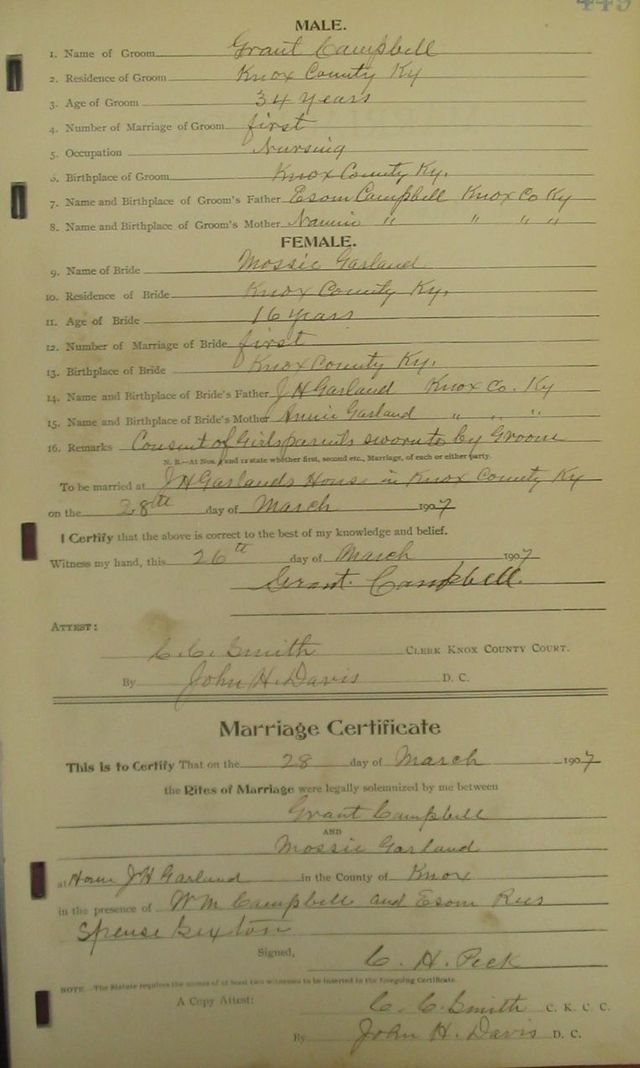 449
MALE.
1. Name of Groom Grant Campbell
2. Residence of Groom Knox County Ky
3. Age of Groom 34 years
4. Number of Marriage of Groom first
5. Occupation Nursing
6. Birthplace of Groom Knox County Ky.
7. Name and Birthplace of Groom's Father Esom Campbell Knox Co Ky
8. Name and Birthplace of Groom's Mother Nannie " " " "
FEMALE.
9. Name of Bride Mossie Garland
10. Residence of Bride Knox County Ky.
11. Age of Bride 16 years
12. Number of Marriage of Bride first
13. Birthplace of Bride Knox County Ky.
14. Name and Birthplace of Bride's Father J H Garland Knox Co. Ky
15. Name and Birthplace of Bride's Mother Annie Garland " " "
16. Remarks Consent of Girls parents sworn to by Groom
N. B.—At Nos. 4 and 12 state whether first, second etc., Marriage, of each or either party.
To be married at J H Garlands House in Knox County Ky
on the 28th day of March 1907
I Certify that the above is correct to the best of my knowledge and belief.
Witness my hand, this 26th day of March 1907
Grant Campbell
ATTEST:
C. C. Smith CLERK KNOX COUNTY COURT.
By John H. Davis D. C.
Marriage Certificate
This is to Certify That on the 28 day of March 1907
the Rites of Marriage were legally solemnized by me between
Grant Campbell
AND
Mossie Garland
at Home J H Garland in the County of Knox
in the presence of Wm Campbell and Esom
Spense Sexton
Signed, C. H. Peck
NOTE.—The Statute requires the names of at least two witnesses to be inserted in the foregoing Certificate.
A Copy Attest: C. C. Smith C. K. C. C.
By John H. Davis D. C.